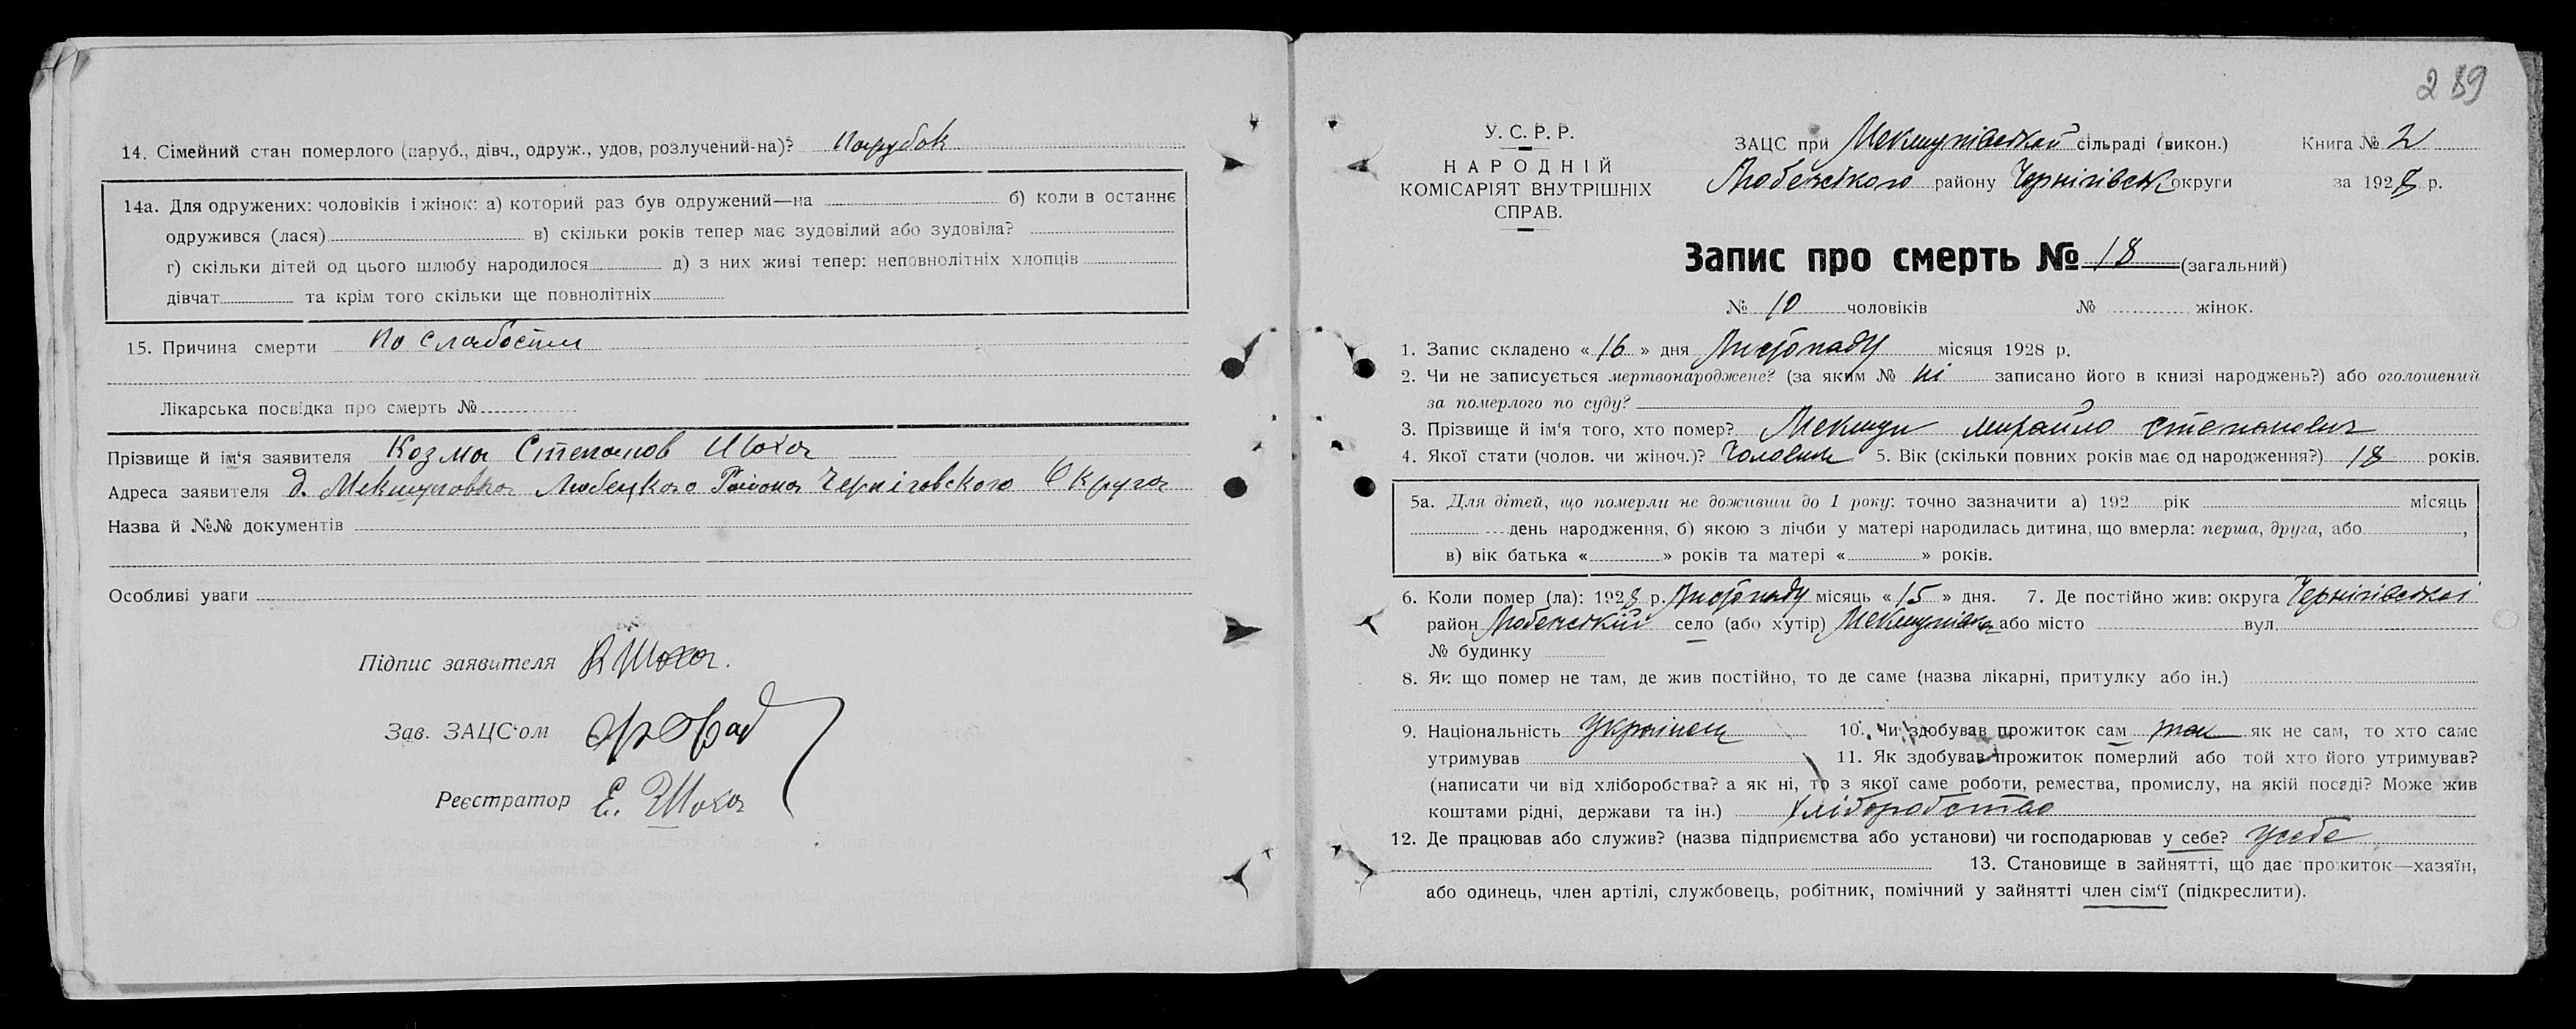 14. Сімейний стан померлого (паруб., дівч., одруж., удов, розлучений-на)? парубок
14а. Для одружених: чоловіків і жінок: а) который раз був одружений—на б) коли в останнє
одружився (лася) в) скільки років тепер має зудовілий або зудовіла?
г) скільки дітей од цього шлюбу народилося д) з них живі тепер: неповнолітніх хлопців
дівчат та крім того скільки ще повнолітніх
15. Причина смерти по слабости
Лікарська посвідка про смерть №
Прізвище й ім'я заявителя Козма Степанов Шоха
Адреса заявителя д. Мекшуновка Любецкого Района Черніговского Округа
Назва й №№ документів
Особливі уваги
Підпис заявителя К Шоха.
Зав. ЗАЦС'ом
Реєстратор Е. Шоха
289
У. С. Р. Р.
НАРОДНІЙ
КОМІСАРІЯТ ВНУТРІШНІХ
СПРАВ.
ЗАЦС при Мекшунівській сільраді (викон.) Книга № 2
Любецького району Чернігівськ округи за 1928 р.
Запис про смерть № 18 (загальний)
№ 10 чоловіків № жінок.
1. Запис складено «16» дня Листопаду місяця 1928 р.
2. Чи не записується мертвонароджене? (за яким № ні записано його в книзі народжень?) або оголошений
за померлого по суду?
3. Прізвище й ім'я того, хто помер? Мекшун Михайло Степанович
4. Якої стати (чолов. чи жіноч.)? Чоловік 5. Вік (скільки повних років має од народження?) 18 років.
5а. Для дітей, що померли не доживши до 1 року: точно зазначити а) 192 рік місяць
день народження, б) якою з лічби у матері народилась дитина, що вмерла: перша, друга, або ,
в) вік батька « » років та матері « » років.
6. Коли помер (ла): 1928 р. Листопаду місяць «15» дня. 7. Де постійно жив: округа Чернігівської
район Любецький село (або хутір) Мекшунівка або місто вул.
№ будинку
8. Як що помер не там, де жив постійно, то де саме (назва лікарні, притулку або ін.)
9. Національність Українець 10. Чи здобував прожиток сам так як не сам, то хто саме
утримував 11. Як здобував прожиток померлий або той хто його утримував?
(написати чи від хліборобства? а як ні, то з якої саме роботи, ремества, промислу, на якій посаді? Може жив
коштами рідні, держави та ін.) хліборобство
12. Де працював або служив? (назва підприємства або установи) чи господарював у себе? усебе
13. Становище в зайнятті, що дає прожиток—хазяїн,
або одинець, член артілі, службовець, робітник, помічний у зайнятті член сім'ї (підкреслити).